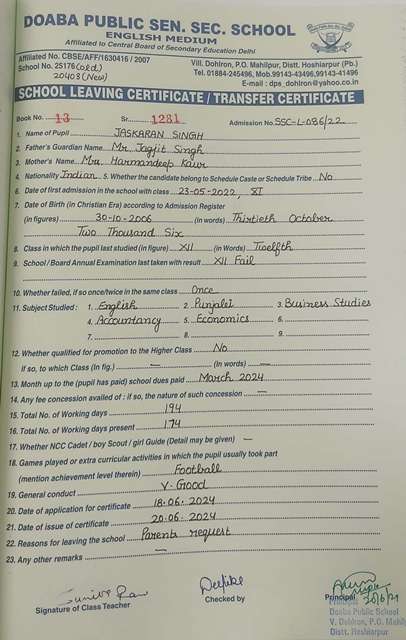 DOABA PUBLIC SEN. SEC. SCHOOL
ENGLISH MEDIUM
Affiliated to Central Board of Secondary Education Delhi
Affiliated No. CBSE/AFF/1630416 / 2007
School No. 25176 (old)
20403 (New)
Vill. Dohlron, P.O. Mahilpur, Distt. Hoshiarpur (Pb.)
Tel. 01884-245496, Mob.99143-43496,99143-41496
E-mail : dps_dohlron@yahoo.co.in
SCHOOL LEAVING CERTIFICATE / TRANSFER CERTIFICATE
Book No. 13 Sr. 1281 Admission No. SSC-L-086/22
1. Name of Pupil JASKARAN SINGH
2. Father's Guardian Name Mr. Jagjit Singh
3. Mother's Name Mrs. Harmandeep Kaur
4. Nationality Indian 5. Whether the candidate belong to Schedule Caste or Schedule Tribe No
6. Date of first admission in the school with class 23-05-2022, XI
7. Date of Birth (in Christian Era) according to Admission Register
(in figures) 30-10-2006 (in words) Thirtieth October
Two Thousand Six
8. Class in which the pupil last studied (in figure) XII (in Words) Twelfth
9. School / Board Annual Examination last taken with result XII Fail
10. Whether failed, if so once/twice in the same class Once
11. Subject Studied : 1. English 2. Punjabi 3. Business Studies
4. Accountancy 5. Economics 6.
7. 8. 9.
12. Whether qualified for promotion to the Higher Class No
if so, to which Class (In fig.) — (In words) —
13. Month up to the (pupil has paid) school dues paid March 2024
14. Any fee concession availed of : if so, the nature of such concession —
15. Total No. of Working days 194
16. Total No. of Working days present 174
17. Whether NCC Cadet / boy Scout / girl Guide (Detail may be given) —
18. Games played or extra curricular activities in which the pupil usually took part
(mention achievement level therein) Football
19. General conduct V. Good
20. Date of application for certificate 18.06.2024
21. Date of issue of certificate 20.06.2024
22. Reasons for leaving the school Parents request
23. Any other remarks —
Signature of Class Teacher
Deepika
Checked by
Principal
20/6/24
Principal
Doaba Public School
V. Dohlron, P.O. Mahil
Distt. Hoshiarpur